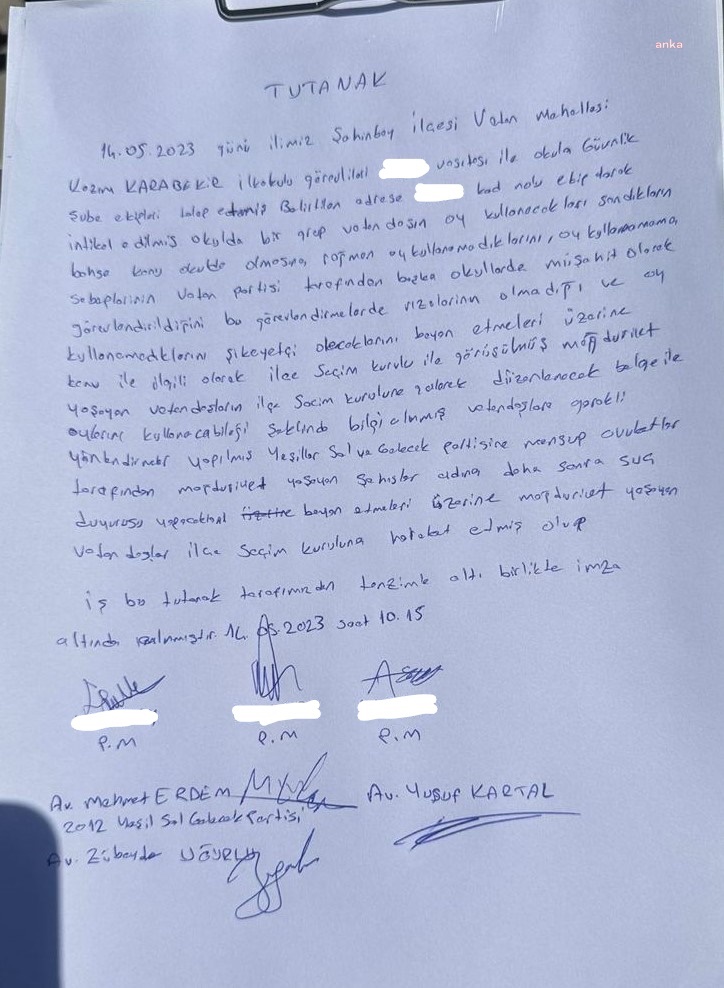 anka
TUTANAK
14.05.2023 günü ilimiz Şahinbey İlçesi Vatan Mahallesi
Kazım KARABEKİR ilkokulu görevlileri vasıtası ile okula Güvenlik
Şube ekipleri talep etmiş Belirtilen adrese kod nolu ekip olarak
intikal edilmiş okulda bir grup vatandaşın oy kullanacakları sandıkların
bahse konu okulda olmasına rağmen oy kullanamadıklarını, oy kullanamama
sebeplerinin Vatan partisi tarafından başka okullarda müşahit olarak
görevlendirildiğini bu görevlendirmelerde rızalarının olmadığı ve oy
kullanamadıklarını şikeyetçi olacaklarını beyan etmeleri üzerine
konu ile ilgili olarak ilçe Seçim kurulu ile görüşülmüş mağduriyet
yaşayan vatandaşların ilçe Seçim kuruluna gelerek düzenlenecek belge ile
oylarını kullanacabileği şeklinde bilgi alınmış vatandaşlara gerekli
yönlendirmeler yapılmış Yeşiller Sol ve Gelecek partisine mensup avukatlar
tarafından mağduriyet yaşayan şahıslar adına daha sonra suç
duyurusu yapacakları üzerine beyan etmeleri üzerine mağduriyet yaşayan
vatandaşlar ilçe Seçim kuruluna hareket etmiş olup
iş bu tutanak tarafımızdan tanzimle altı birlikte imza
altında kalınmıştır. 14.05.2023 saat 10.15
P.M P.M P.M
Av. Mehmet ERDEM Av. Yusuf KARTAL
2012 Yeşil Sol Gelecek Partisi
Av. Zübeyde UĞURLU